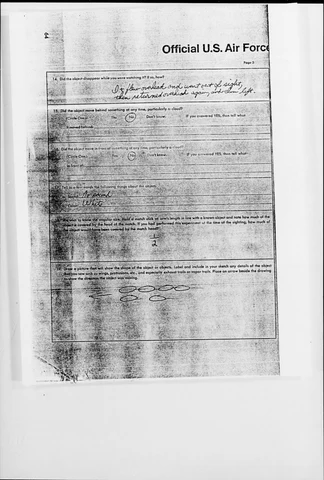 Official U.S. Air Force
Page 3
14. Did the object disappear while you were watching it? If so, how?
It flew overhead and went out of sight,
then returned overhead again, and then left.
15. Did the object move behind something at any time, particularly a cloud?
(Circle One): Yes No Don't Know. If you answered YES, then tell what
it moved behind:
16. Did the object move in front of something at any time, particularly a cloud?
(Circle One): Yes No Don't Know. If you answered YES, then tell what
in front of:
17. Tell in a few words the following things about the object:
White
18. We wish to know the angular size. Hold a match stick at arm's length in line with a known object and note how much of the
object is covered by the head of the match. If you had performed this experiment at the time of the sighting, how much of
the object would have been covered by the match head?
1/2
19. Draw a picture that will show the shape of the object or objects. Label and include in your sketch any details of the object
that you saw such as wings, protrusions, etc., and especially exhaust trails or vapor trails. Place an arrow beside the drawing
to show the direction the object was moving.